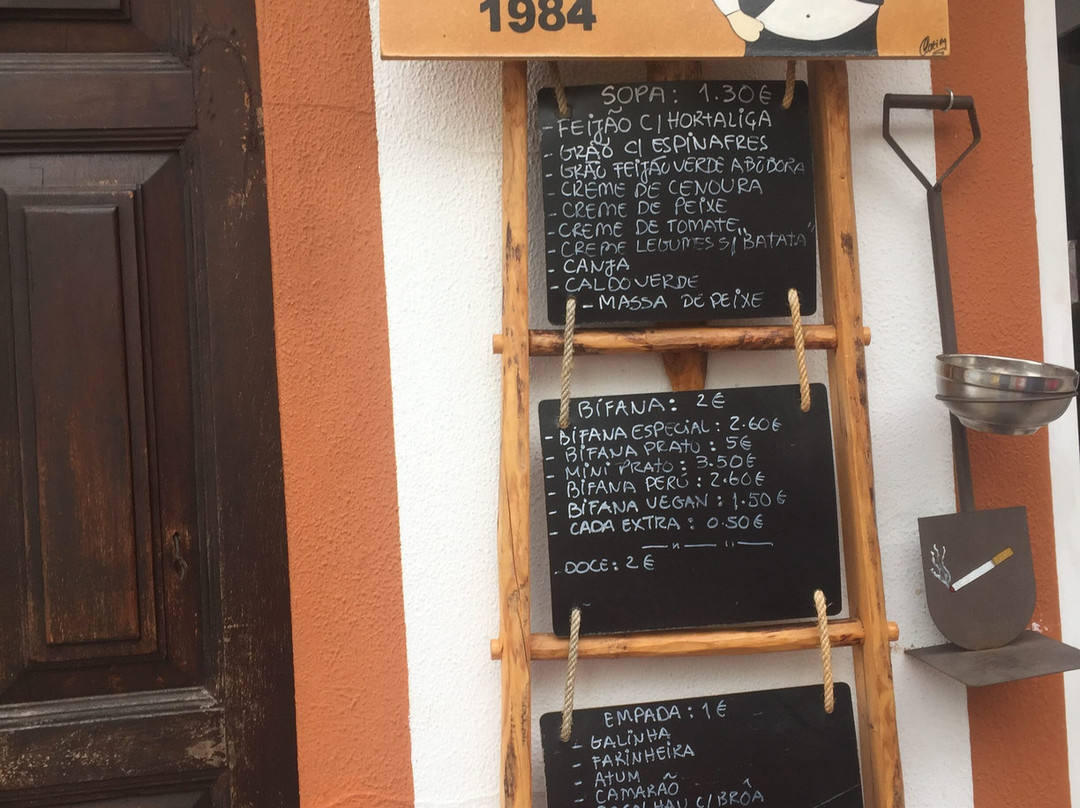 1984
SOPA: 1.30€
- FEIJÃO C/ HORTALIÇA
- GRÃO C/ ESPINAFRES
- GRÃO FEIJÃO VERDE ABÓBORA
- CREME DE CENOURA
- CREME DE PEIXE
- CREME DE TOMATE
- CREME LEGUMES S/ "BATATA"
- CANJA
- CALDO VERDE
- MASSA DE PEIXE
BIFANA: 2€
- BIFANA ESPECIAL: 2.60€
- BIFANA PRATO: 5€
MINI PRATO: 3.50€
- BIFANA PERÚ: 2.60€
- BIFANA VEGAN: 1.50€
- CADA EXTRA: 0.50€
- DOCE: 2€
EMPADA: 1€
- GALINHA
- FARINHEIRA
- ATUM
- CAMARÃO
C/ BRÔA